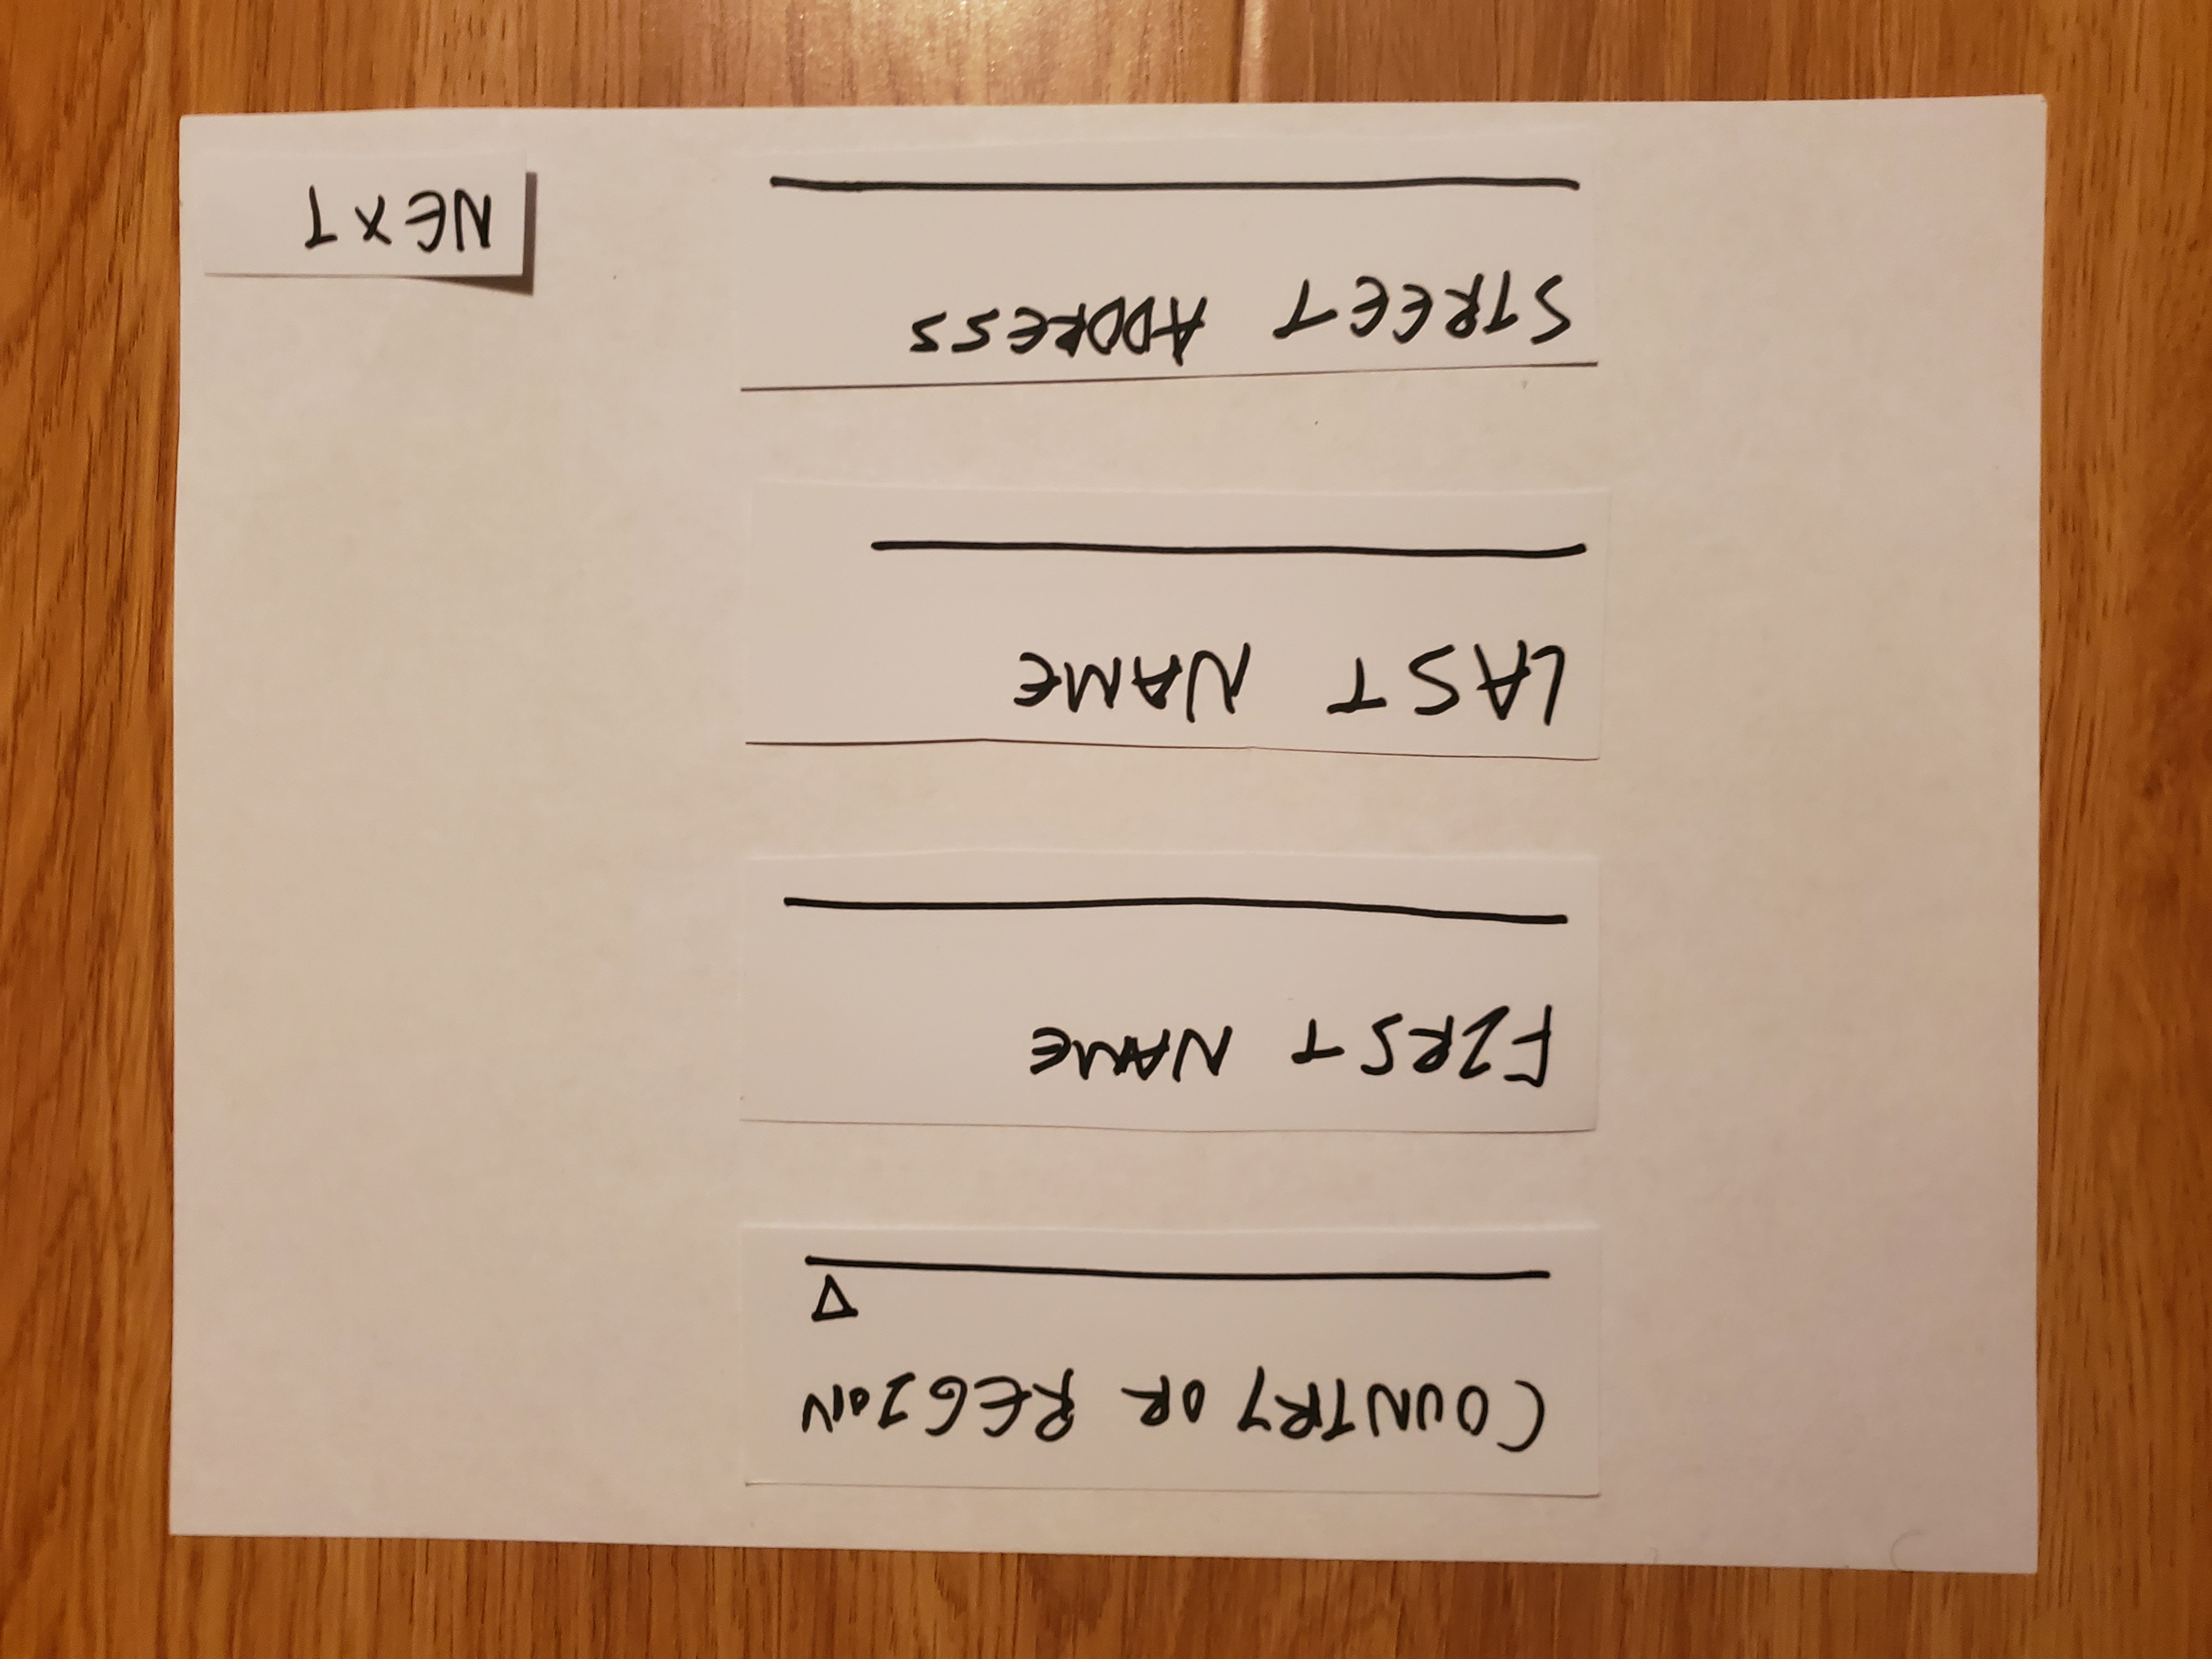 COUNTRY OR REGION
FIRST NAME
LAST NAME
STREET ADDRESS
NEXT